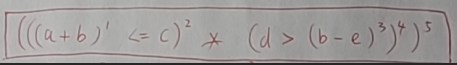 (((a+b)¹ <= c)² * (d > (b-e)³)⁴)⁵